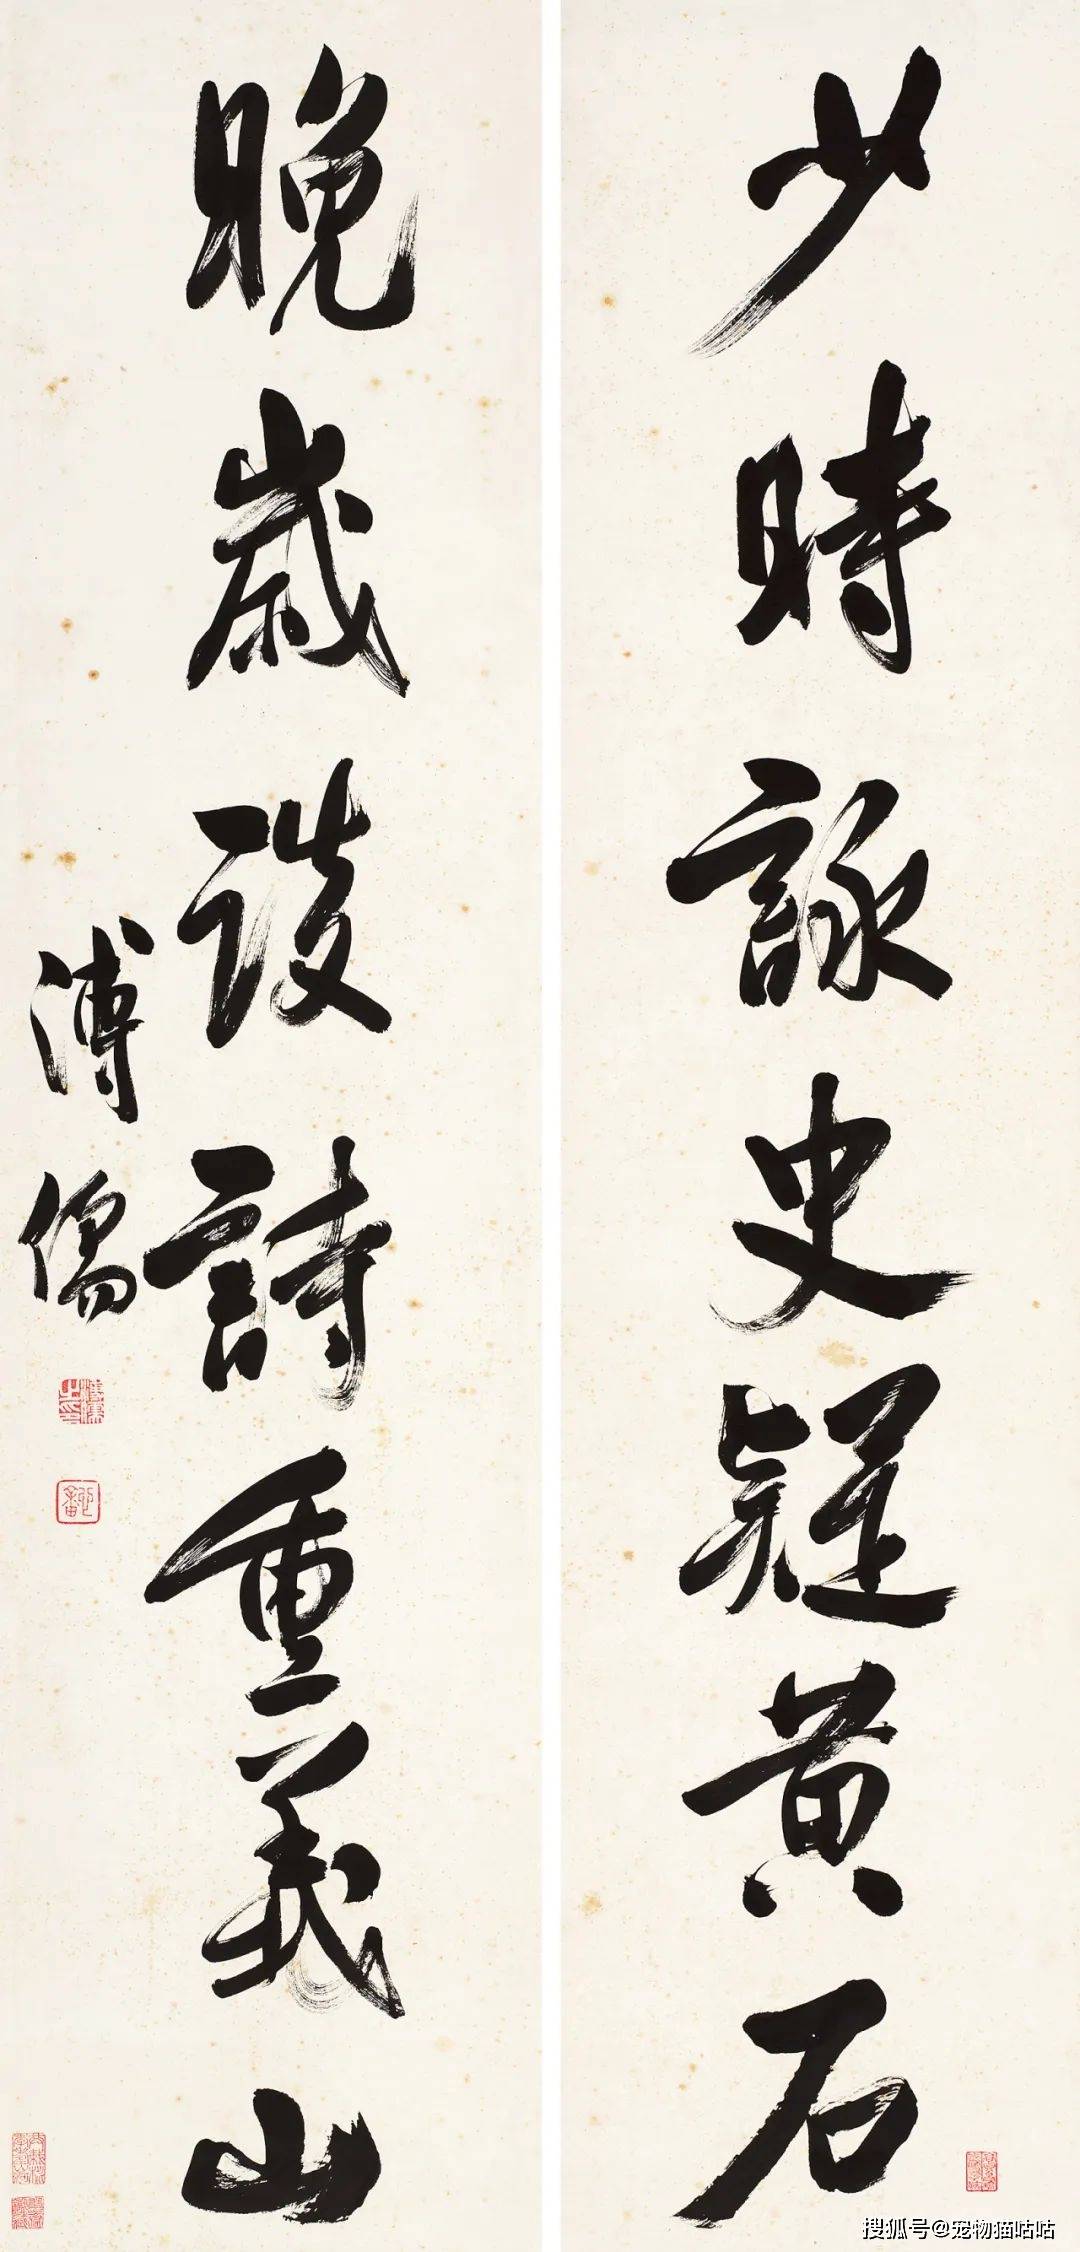 少時詠史疑黄石
晚歲談詩重義山
溥儒
溥儒之印
搜狐号@宠物猫咕咕